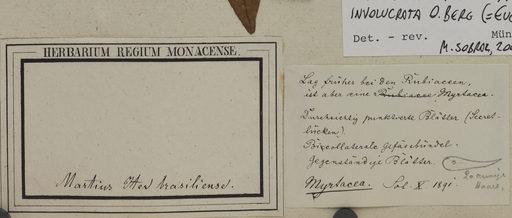 INVOLUCRATA O. BERG (= EUG
Det. - rev. Mün
M. SOBRAL, 200
HERBARIUM REGIUM MONACENSE.
Martius Iter brasiliense.
Lag früher bei den Rubiaceen,
ist aber eine Rubiacee Myrtacea.
Durchsichtig punktirte Blätter (Secret-
lücken).
Bicollaterale Gefässbündel.
Gegenständige Blätter.
Haare.
Myrtacea. Sol. X 1891.